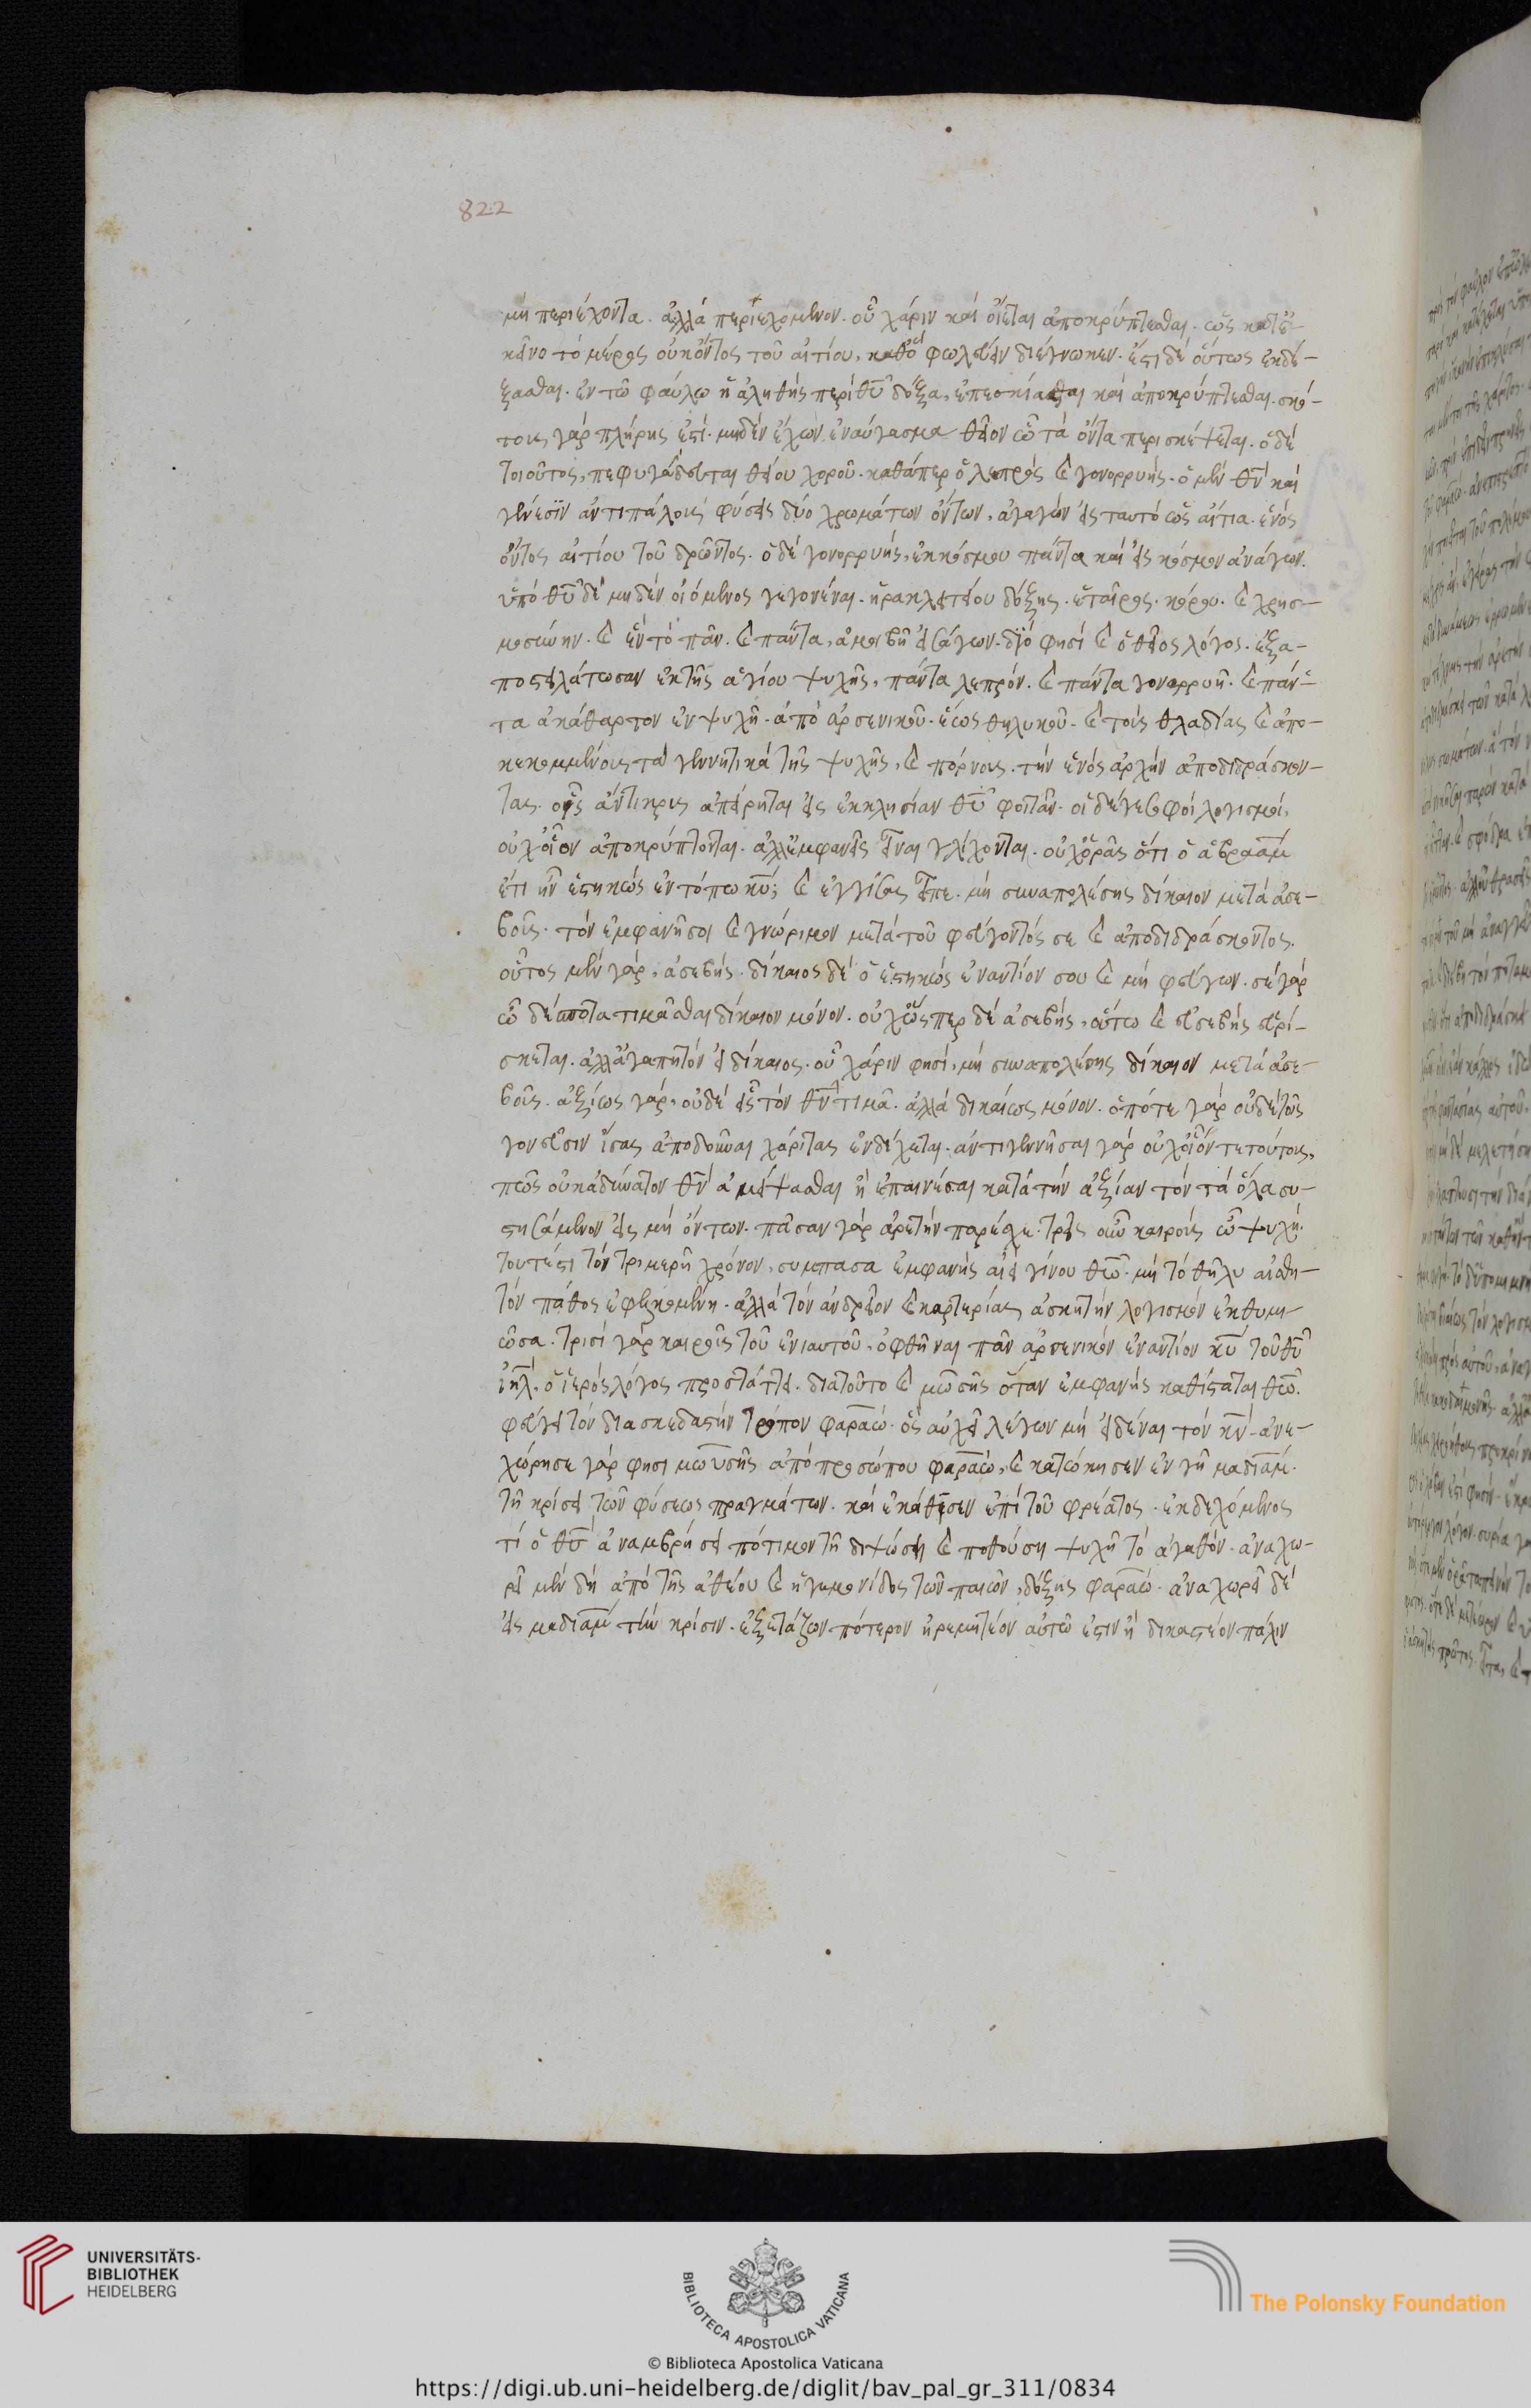 822
μὴ περιέχοντα. ἀλλὰ περιεχόμενον. οὗ χάριν καὶ οἴεται ἀποκρύπτεσθαι. ὡς κατ' ἐ-
κεῖνο τὸ μέρος οὐκ ὄντος τοῦ αἰτίου, καθ' ὃ φωλεύειν διέγνωκεν. ἔστι δὲ οὕτως ἐκδέ-
ξασθαι. ἐν τῶ φαύλω ἡ ἀληθὴς περὶ θῦ δόξα, ἐπεσκίασται καὶ ἀποκρύπτεσθαι. σκό-
τους γὰρ πλήρης ἐστί. μηδὲν ἔχων ἐναύγασμα θεῖον ὧ τὰ ὄντα περισκέψεται. ὁ δὲ
τοιοῦτος, πεφυγάδευται θείου χοροῦ. καθάπερ ὁ λεπρὸς καὶ γονορρυής. ὁ μὲν θν καὶ
γένεσιν ἀντιπάλους φύσεις δύο χρωμάτων ὄντων, ἀγαγὼν εἰς ταυτὸ ὡς αἴτια. ἑνὸς
ὄντος αἰτίου τοῦ δρῶντος. ὁ δὲ γονορρυής, ἐκ κόσμου πάντα καὶ εἰς κόσμον ἀνάγων.
ὑπὸ θῦ δὲ μηδὲν οἰόμενος γεγονέναι. ἡρακλειτείου δόξης. ἑταῖρος. κόρον. καὶ χρησ-
μοσύνην. καὶ ἓν τὸ πᾶν. καὶ πάντα, ἀμοιβῆ εἰσάγων. διό φησι καὶ ὁ θεῖος λόγος. ἐξα-
ποστειλάτωσαν ἐκ τῆς ἁγίου ψυχῆς, πάντα λεπρόν. καὶ πάντα γονορρυῆ. καὶ πάν-
τα ἀκάθαρτον ἐν ψυχῆ. ἀπὸ ἀρσενικοῦ. ἕως θηλυκοῦ. καὶ τοὺς θλαδίας καὶ ἀπο-
κεκομμένους τὰ γεννητικὰ τῆς ψυχῆς, καὶ πόρνους. τὴν ἑνὸς ἀρχὴν ἀποδιδράσκον-
τας. οἷς ἄντικρυς ἀπείρηται εἰς ἐκκλησίαν θῦ φοιτᾶν. οἱ δέ γε σοφοὶ λογισμοί,
οὐχ οἷον ἀποκρύπτονται. ἀλλ' ἐμφανεῖς εἶναι γλίχονται. οὐχ ὁρᾶς ὅτι ὁ ἀβραὰμ
ἔτι ἦν ἑστηκὼς ἐν τόπω κυ; καὶ ἐγγίσας εἶπε. μὴ συναπολέσης δίκαιον μετὰ ἀσε-
βοῦς. τὸν ἐμφανῆ σοι καὶ γνώριμον μετὰ τοῦ φεύγοντός σε καὶ ἀποδιδράσκοντος.
οὗτος μὲν γάρ, ἀσεβής. δίκαιος δὲ ὁ ἑστηκὼς ἐναντίον σου καὶ μὴ φεύγων. σὲ γὰρ
ὦ δέσποτα τιμᾶσθαι δίκαιον μόνον. οὐχ ὥσπερ δὲ ἀσεβής, οὕτω καὶ εὐσεβὴς εὑρί-
σκεται. ἀλλ' ἀγαπητὸν εἰ δίκαιος. οὗ χάριν φησί, μὴ συναπολέσης δίκαιον μετὰ ἀσε-
βοῦς. ἀξίως γάρ, οὐδὲ εἷς τὸν θν τιμᾶ. ἀλλὰ δικαίως μόνον. ὁπότε γὰρ οὐδὲ τοῖς
γονεῦσιν ἴσας ἀποδοῦναι χάριτας ἐνδέχεται. ἀντιγεννῆσαι γὰρ οὐχ οἷόν τε τούτους,
πῶς οὐκ ἀδύνατον θν ἀμείψασθαι ἢ ἐπαινέσαι κατὰ τὴν ἀξίαν τὸν τὰ ὅλα συ-
στησάμενον ἐκ μὴ ὄντων. πᾶσαν γὰρ ἀρετὴν παρέσχε. τρεῖς οὖν καιροὺς ὦ ψυχή.
τουτέστι τὸν τριμερῆ χρόνον, σύμπασα ἐμφανὴς αἰεὶ γίνου θεῶ. μὴ τὸ θῆλυ αἰσθη-
τὸν πάθος ἐφελκομένη. ἀλλὰ τὸν ἀνδρεῖον καὶ καρτερίας ἀσκητὴν λογισμὸν ἐκθυμι-
ῶσα. τρισὶ γὰρ καιροῖς τοῦ ἐνιαυτοῦ, ὀφθῆναι πᾶν ἀρσενικὸν ἐναντίον κυ τοῦ θῦ
ιηλ, ὁ ἱερὸς λόγος προστάττει. διὰ τοῦτο καὶ μωσῆς ὅταν ἐμφανὴς καθίσταται θῶ.
φεύγει τὸν διασκεδαστὴν τρόπον φαραώ. ὃς αὐχεῖ λέγων μὴ εἰδέναι τὸν κν. ἀνε-
χώρησε γάρ φησι μωυσῆς ἀπὸ προσώπου φαραώ, καὶ κατώκησεν ἐν γῆ μαδιάμ.
τῆ κρίσει τῶν φύσεως πραγμάτων. καὶ ἐκάθισεν ἐπὶ τοῦ φρέατος. ἐκδεχόμενος
τί ὁ θς ἀναμβρήσει πότιμον τῆ διψώση καὶ ποθούση ψυχῆ τὸ ἀγαθόν. ἀναχω-
ρεῖ μὲν δὴ ἀπὸ τῆς ἀθέου καὶ ἡγεμονίδος τῶν παθῶν, δόξης φαραώ. ἀναχωρεῖ δὲ
εἰς μαδιὰμ τὴν κρίσιν. ἐξετάζων πότερον ἠρεμητέον αὐτῶ ἐστιν ἢ δικαστέον πάλιν
UNIVERSITÄTS-
BIBLIOTHEK
HEIDELBERG
BIBLIOTECA APOSTOLICA VATICANA
The Polonsky Foundation
© Biblioteca Apostolica Vaticana
https://digi.ub.uni-heidelberg.de/diglit/bav_pal_gr_311/0834